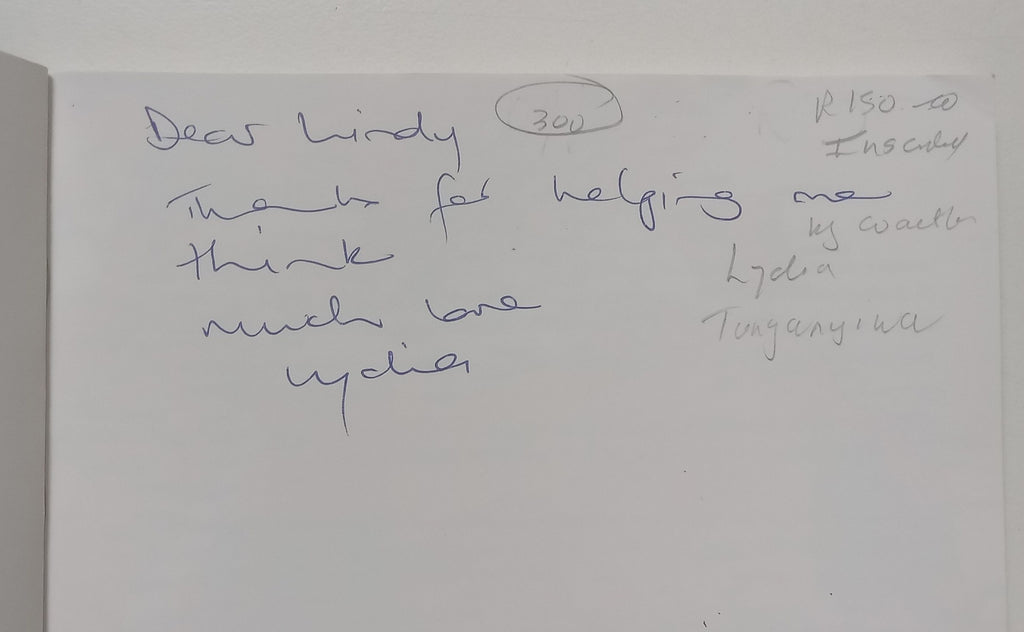 Dear Lindy
300
R150.00
Inscribed
Thanks for helping me
by
think
Lydia
much love
Lydia